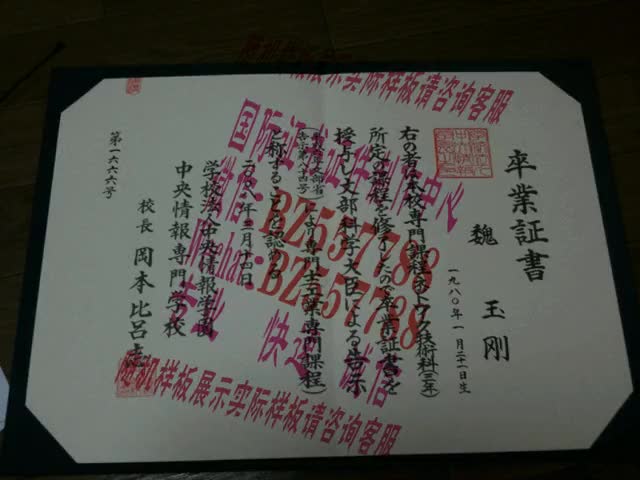 卒業証書
魏 玉剛
一九八〇年一月二十一日生
右の者は本校専門課程ネットワーク技術科(三年)
所定の課程を修了したので卒業証書を
授与し文部科学大臣による告示
により専門士(工業専門課程)
と称することを認める
二〇〇八年三月十四日
学校法人中央情報学園
中央情報専門学校
校長 岡本比呂志
第一六六六号
随机样板展示实际样板请咨询客服
国际 中心
微信:BZ557788
Wechat:BZ557788
专业 快速 诚信
随机样板展示实际样板请咨询客服